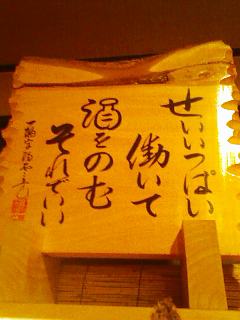 せいいっぱい
働いて
酒をのむ
それでいい